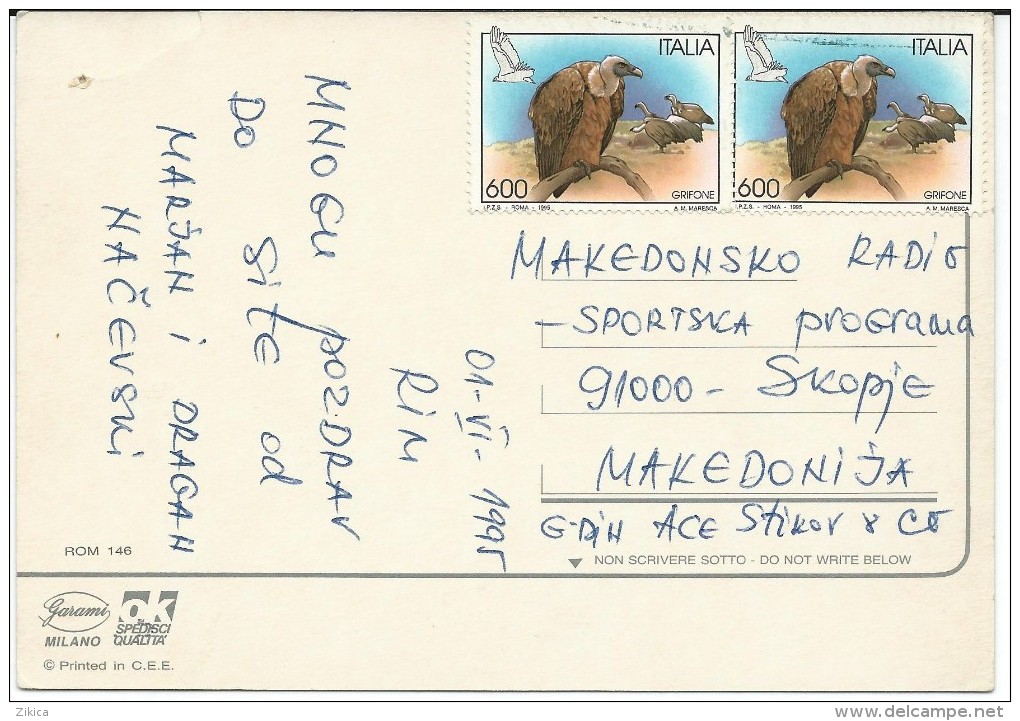 ITALIA
600
GRIFONE
I.P.Z.S. - ROMA - 1995
A. M. MARESCA
ITALIA
600
GRIFONE
I.P.Z.S. - ROMA - 1995
A. M. MARESCA
01-VI-1995
RIM
MNOGU POZ.DRAV
DO SITE OD
MARJAN I DRAGAN
NAČEVSKI
MAKEDONSKO RADIO
- SPORTSKA PROGRAMA
91000 - SKOPJE
MAKEDONIJA
G-DIN ACE STIKOV & CO
NON SCRIVERE SOTTO - DO NOT WRITE BELOW
ROM 146
Garami
MILANO
ok
SPEDISCI
QUALITA'
© Printed in C.E.E.
Zikica
www.delcampe.net